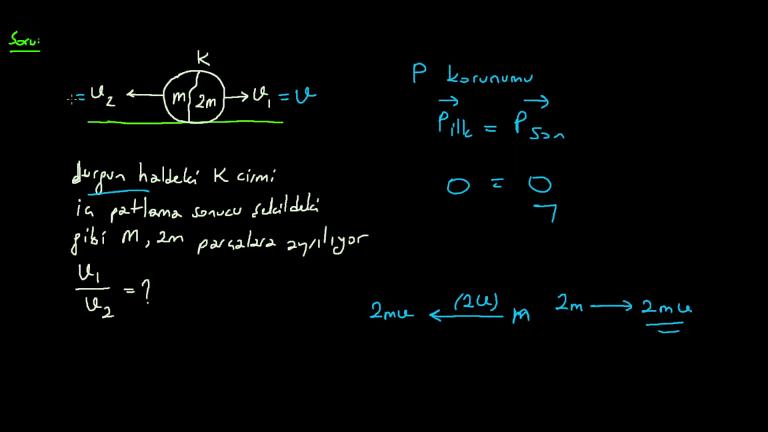 Soru:
K
= υ₂ ← m 2m → υ₁ = υ
durgun haldeki K cismi
iç patlama sonucu şekildeki
gibi m, 2m parçalara ayrılıyor
υ₁/υ₂ = ?
P korunumu
P⃗ilk = P⃗son
0 = 0
2mυ ← (2υ) m 2m → 2mυ